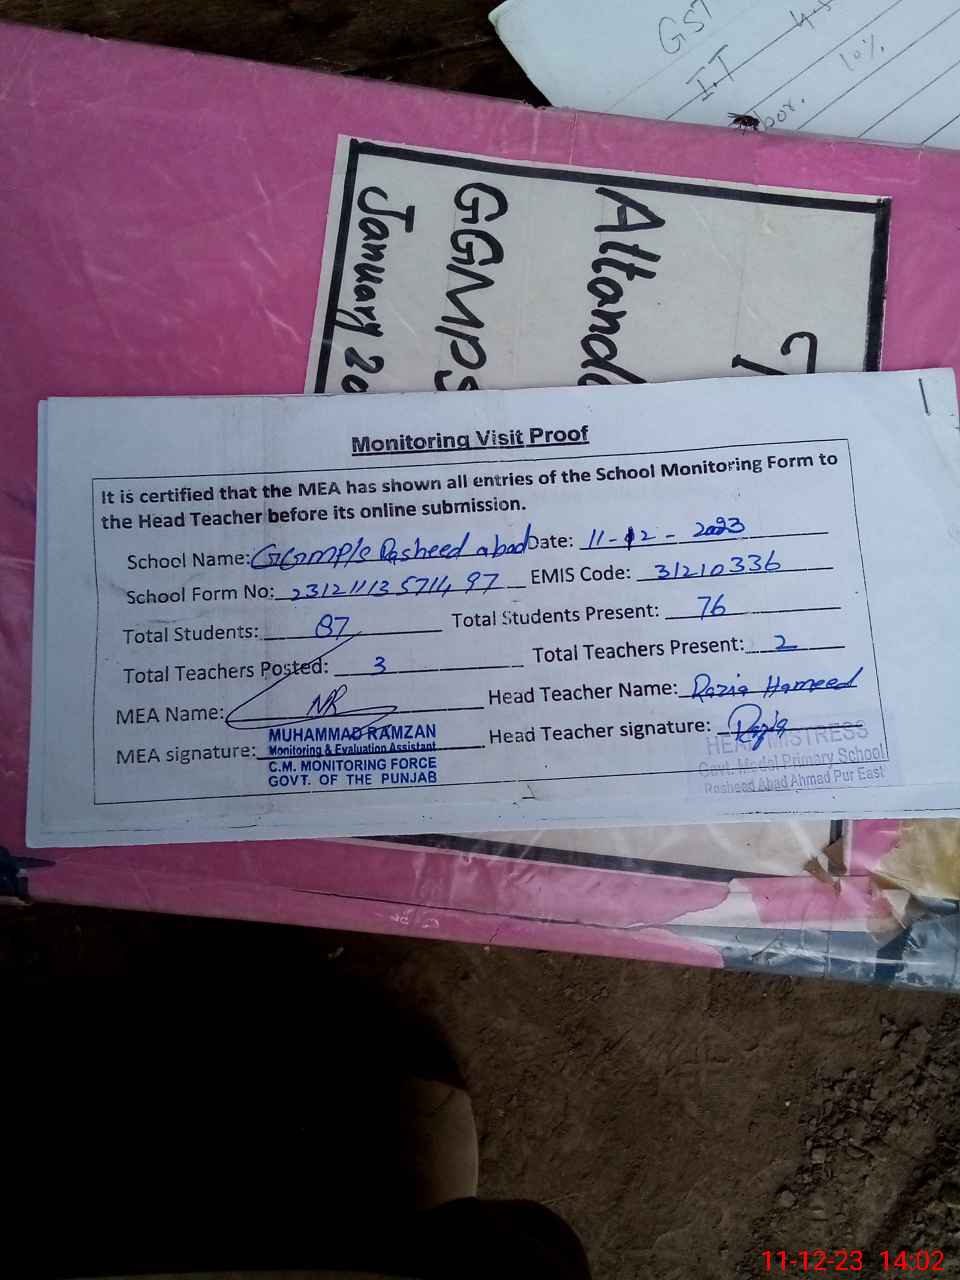 GST
I.T
10%
January 20
GGMPS
Attand
Monitoring Visit Proof
It is certified that the MEA has shown all entries of the School Monitoring Form to
the Head Teacher before its online submission.
School Name: GGMP/s Rasheed abad Date: 11-12-2023
School Form No: 23121113571497 EMIS Code: 31210336
Total Students: 87 Total Students Present: 76
Total Teachers Posted: 3 Total Teachers Present: 2
MEA Name: Head Teacher Name: Razia Hameed
MEA signature: Head Teacher signature: Razia
MUHAMMAD RAMZAN
Monitoring & Evaluation Assistant
C.M. MONITORING FORCE
GOVT. OF THE PUNJAB
HEAD MISTRESS
Govt. Model Primary School
Rasheed Abad Ahmad Pur East
11-12-23 14:02